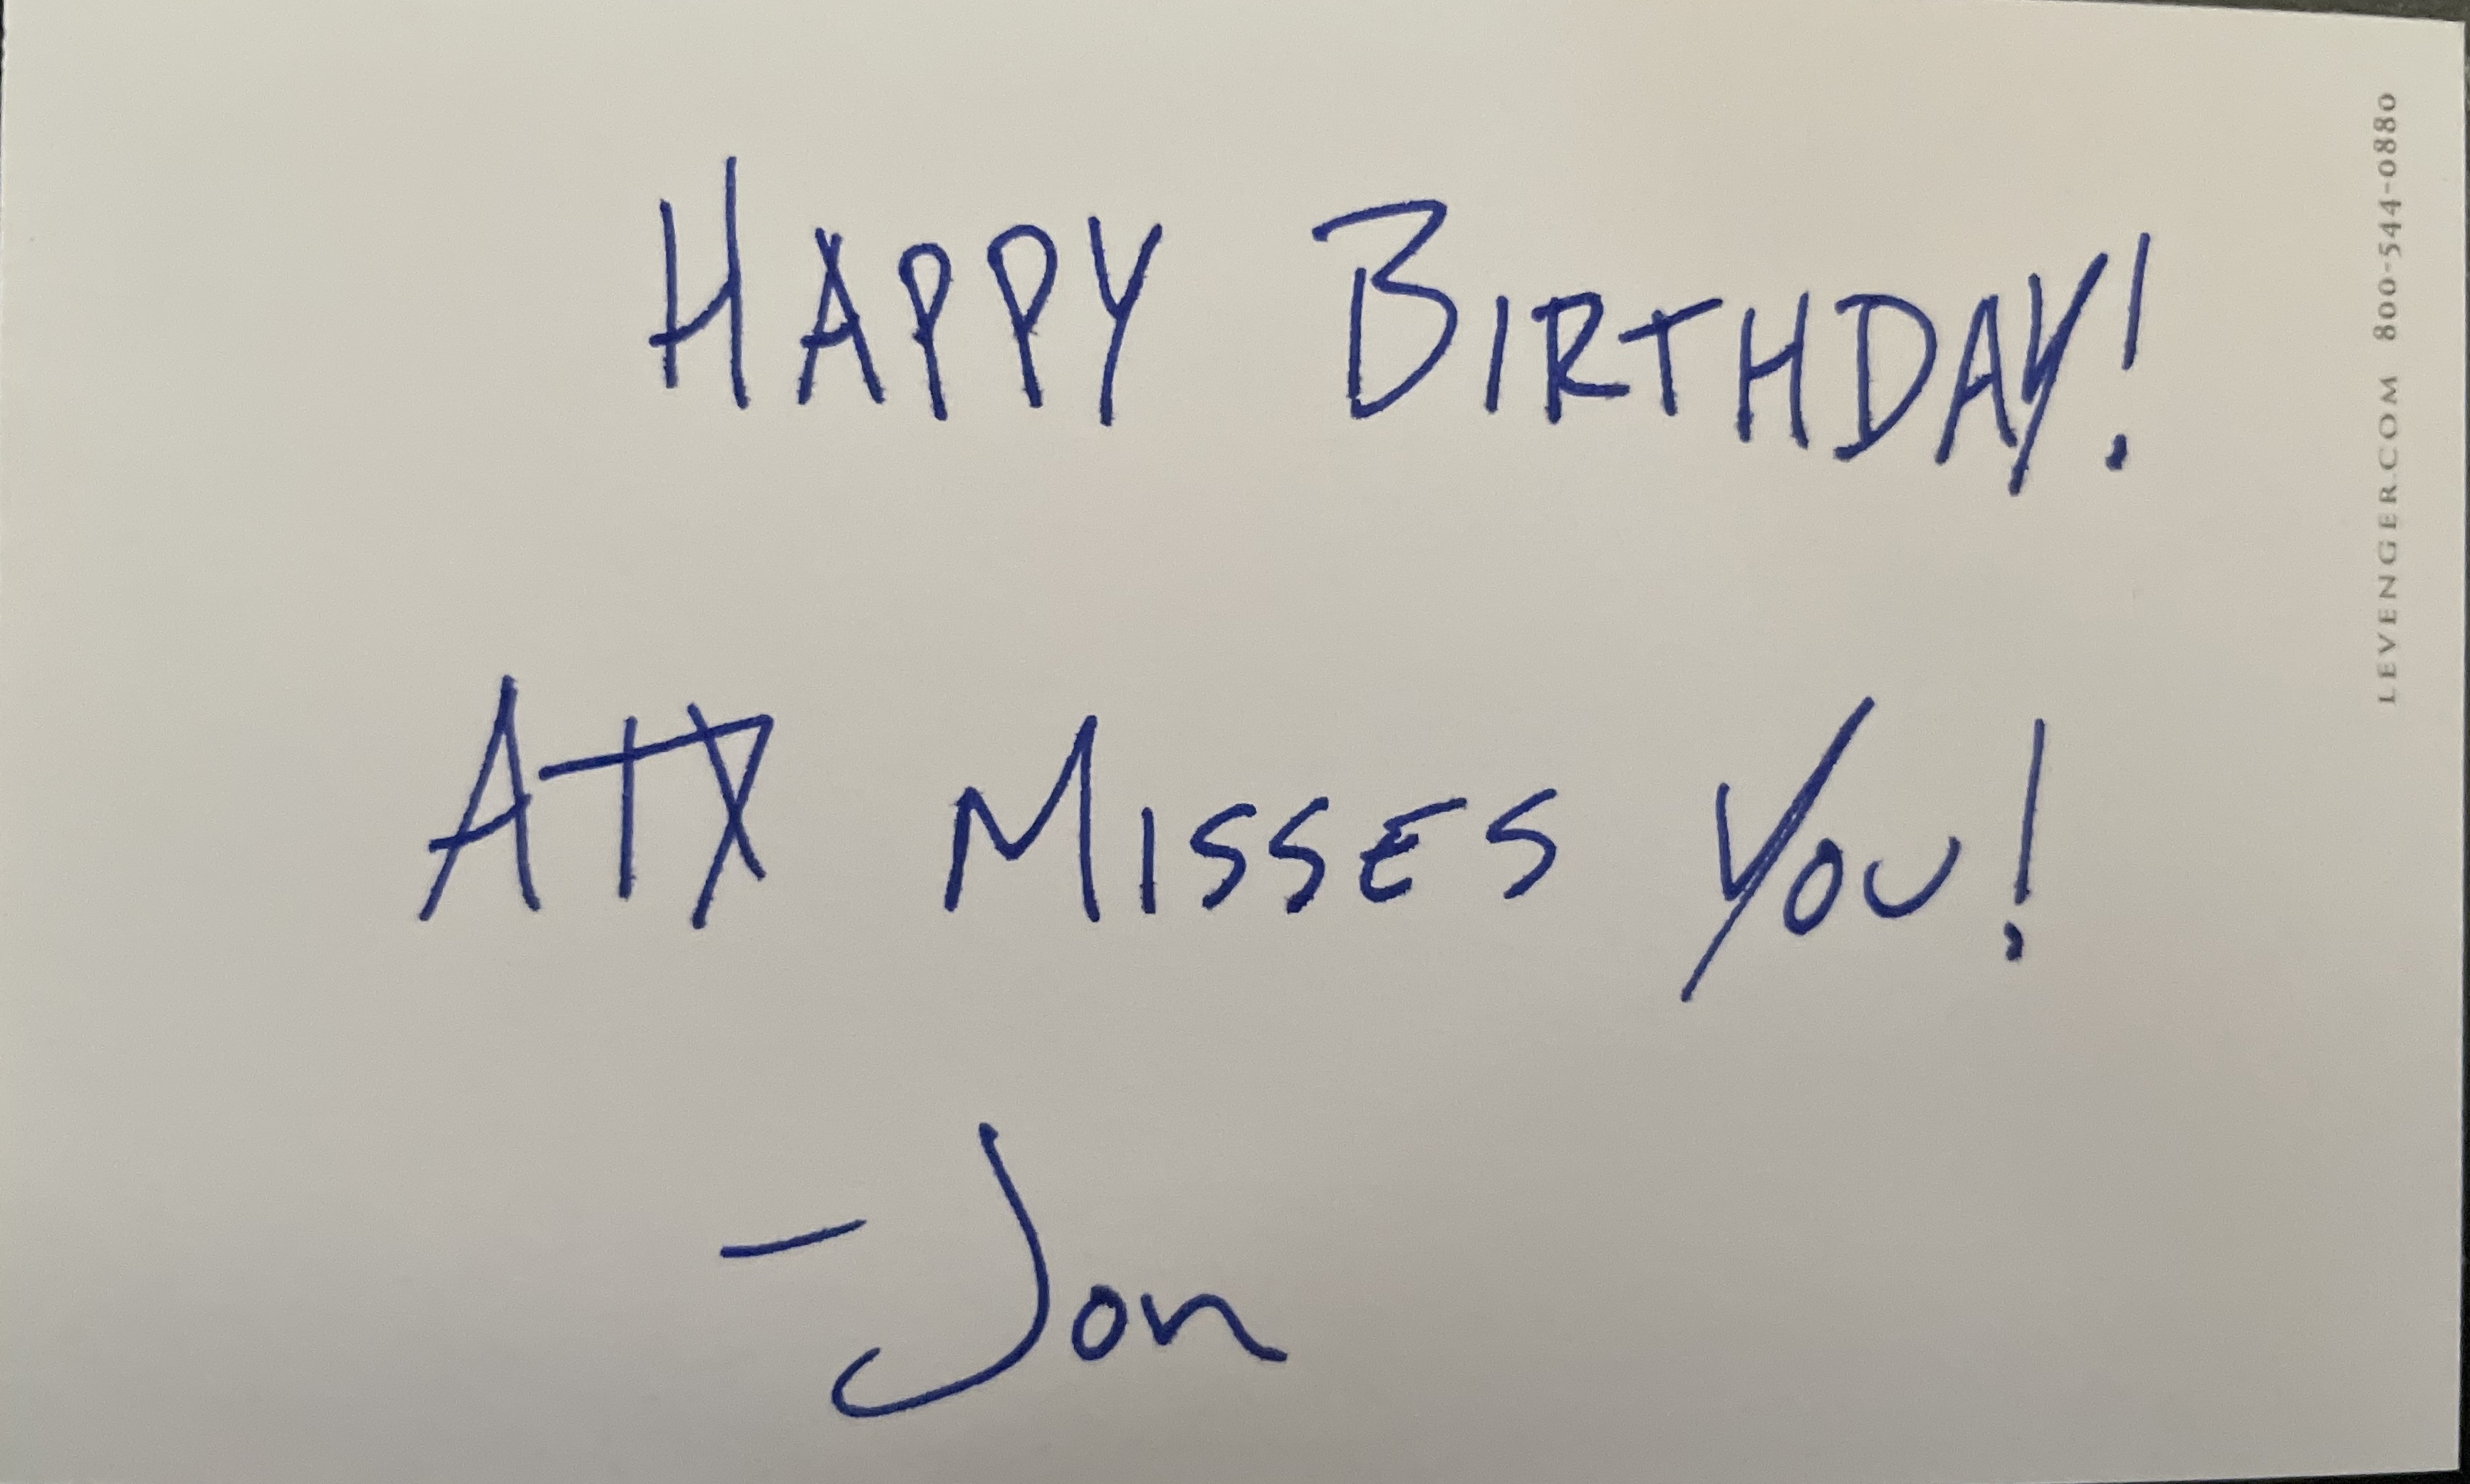 HAPPY BIRTHDAY!
ATX MISSES YOU!
-Jon
LEVENGER.COM 800-544-0880